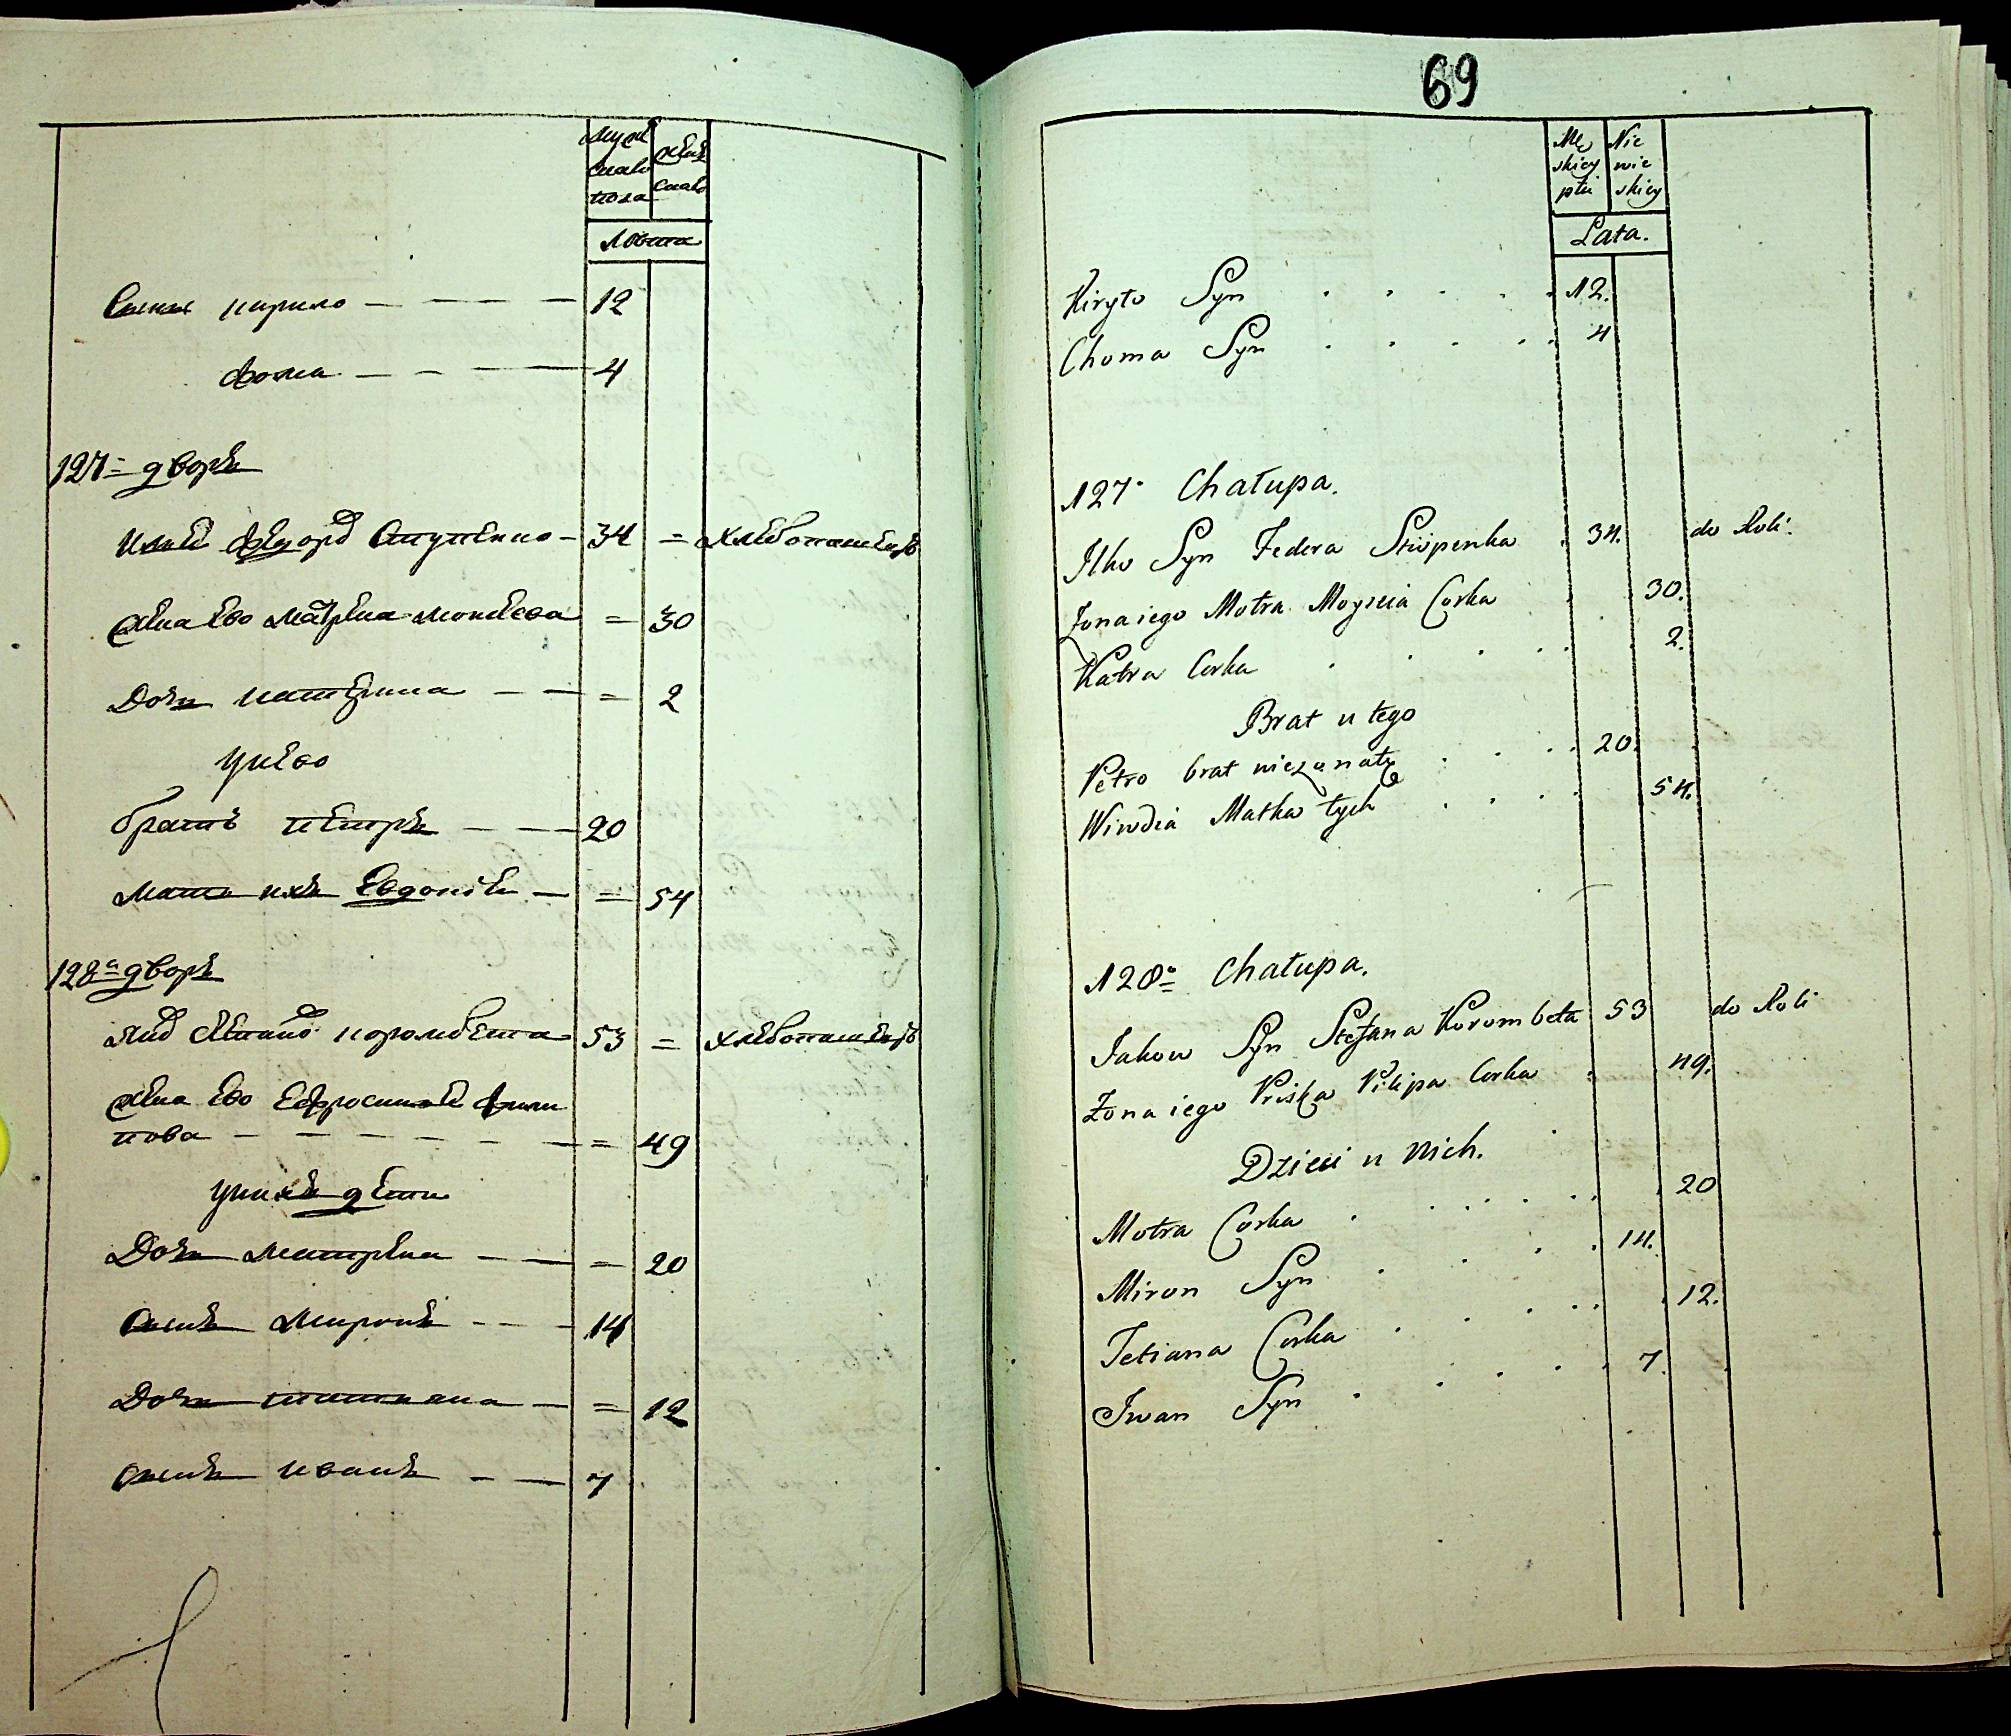 муже
скаго
пола
жен
скаго
Лѣта
Сынъ кирило 12
фома 4
127 дворъ
Илья Федоров Ступенко 34 = хлебопашецъ
жена Ево Матрена Моисеева = 30
Дочь катерина = 2
унево
братъ петръ 20
мать ихъ Евдокія = 54
128 дворъ
Яков Степанов коромбета 53 = хлебопашецъ
жена Ево Ефросинья Фили
пова = 49
унихъ дети
Дочь матрена = 20
сынъ миронъ 14
Дочь татияна = 12
сынъ иванъ 7
69
Mę
skiey
płci
Nie
wie
skiey
Lata.
Kiryło Syn 12.
Choma Syn 4
127. Chałupa.
Ilko Syn Fedora Stupenka 34. do Roli.
Zona iego Motra Moysieia Corka 30.
Katra Corka 2.
Brat u tego
Petro brat niezonaty 20.
Wiwdia Matka tych 54.
128. Chałupa.
Jakow Syn Stefana Korombeta 53 do Roli
Zona iego Priska Pilipa Corka 49.
Dzieci u nich.
Motra Corka 20
Miron Syn 14.
Tetiana Corka 12.
Iwan Syn 7.